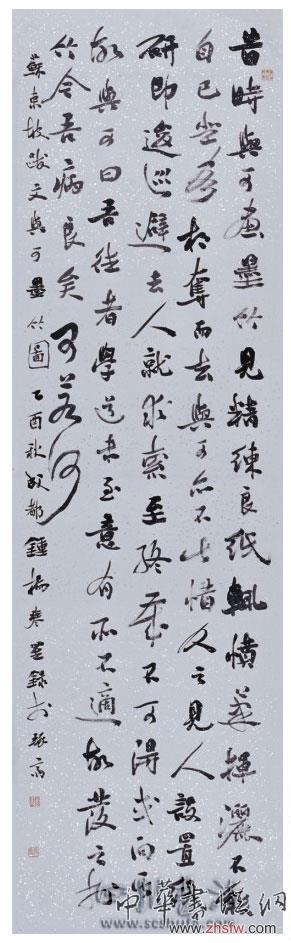 昔時與可畫墨竹見精練良紙輒憤筆揮灑不能
自已坐客相奪而去與可亦不甚惜久之見人設置筆
研即逡巡避去人就求索至終歲不可得或問其
故與可曰吾往者學道未至意有所不適故發之於
竹今吾病良矣可若何
蘇東坡跋文與可墨竹圖 乙酉秋 都 錄於
中華書 網
www.zhsfw.com